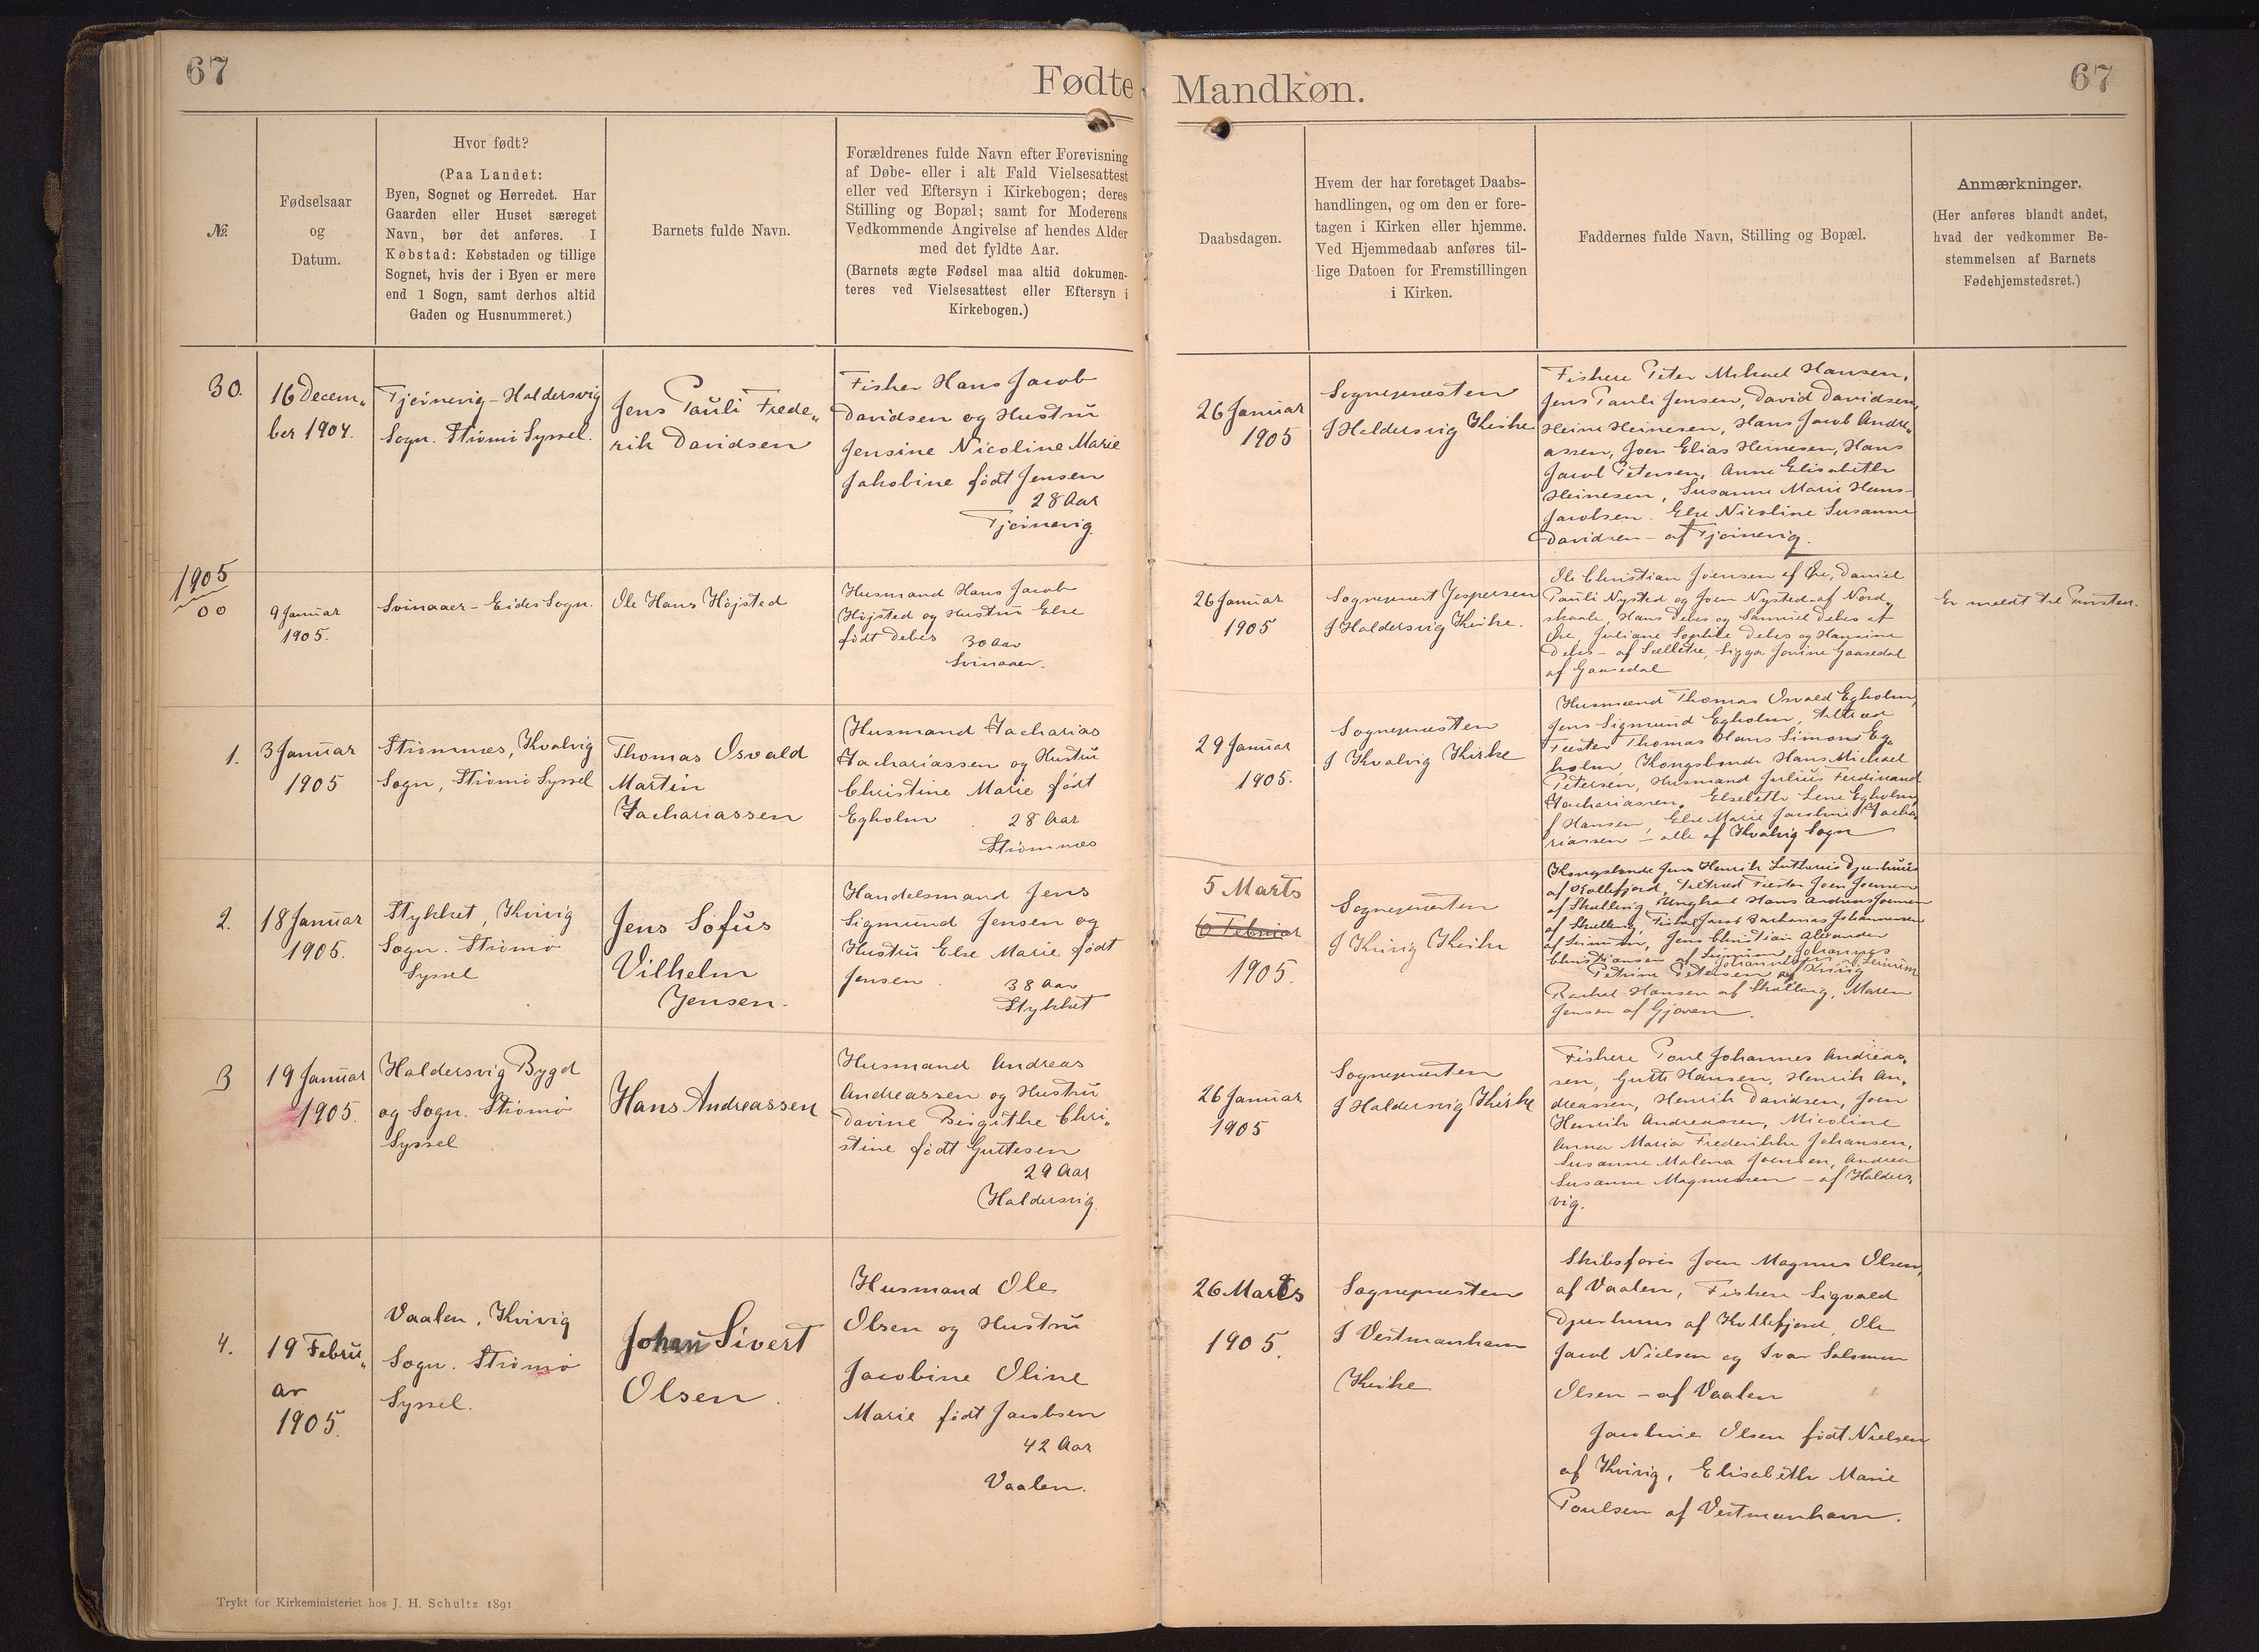 67
Fødte
Mandkøn.
67
№.
Fødselsaar
og
Datum.
Hvor født?
(Paa Landet:
Byen, Sognet og Herredet. Har
Gaarden eller Huset særeget
Navn, bør det anføres. I
Købstad: Købstaden og tillige
Sognet, hvis der i Byen er mere
end 1 Sogn, samt derhos altid
Gaden og Husnummeret.)
Barnets fulde Navn.
Forældrenes fulde Navn efter Forevisning
af Døbe- eller i alt Fald Vielsesattest
eller ved Eftersyn i Kirkebogen; deres
Stilling og Bopæl; samt for Moderens
Vedkommende Angivelse af hendes Alder
med det fyldte Aar.
(Barnets ægte Fødsel maa altid dokumen-
teres ved Vielsesattest eller Eftersyn i
Kirkebogen.)
Daabsdagen.
Hvem der har foretaget Daabs-
handlingen, og om den er fore-
tagen i Kirken eller hjemme.
Ved Hjemmedaab anføres til-
lige Datoen for Fremstillingen
i Kirken.
Faddernes fulde Navn, Stilling og Bopæl.
Anmærkninger.
(Her anføres blandt andet,
hvad der vedkommer Be-
stemmelsen af Barnets
Fødehjemstedsret.)
30.
16 Decem„
ber 1904.
Tjørnevig - Haldersvig
Sogn. Strømø Syssel.
Jens Pauli Frede„
rik Davidsen
Fisker Hans Jacob
Davidsen og Hustru
Jensine Nicoline Marie
Jakobine født Jensen
28 Aar
Tjørnevig.
26 Januar
1905
Sognepræsten
I Haldersvig Kirke
Fiskere Peter Mikael Hansen,
Jens Pauli Jensen, David Davidsen,
Heine Heinesen, Hans Jacob Andre„
assen, Joen Elias Heinesen, Hans
Jacob Petersen, Anne Elisabeth
Heinesen, Susanne Marie Hans-
Jacobsen. Else Nicoline Susanne
Davidsen - af Tjørnevig.
1905
00
9 Januar
1905.
Svinaaer - Eides Sogn.
Ole Hans Højsted
Husmand Hans Jacob
Højsted og Hustru Else
født Debes 30 Aar
Svinaaer.
26 Januar
1905
Sognepræst Jespersen
I Haldersvig Kirke.
Ole Christian Joensen af Øre, Daniel
Pauli Nysted og Joen Nysted af Nord„
skaale, Hans Debes og Samuel Debes af
Øre, Juliane Sophie Debes og Hansine
Debes - af Selletræ, Sigga Jovine Gaasedal
af Gaasedal
Er meldt til Præsten.
1.
3 Januar
1905
Strømnes, Kvalvig
Sogn, Strømø Syssel
Thomas Osvald
Martin
Zachariassen
Husmand Zacharias
Zachariassen og Hustru
Christine Marie født
Egholm 28 Aar
Strømnes
29 Januar
1905.
Sognepræsten
I Kvalvig Kirke
Husmænd Thomas Osvald Egholm,
Jens Sigmund Egholm, Tiltræd
Fæster Thomas Hans Simon Eg„
holm, Kongsbonde Hans Michael
Petersen, Husmand Julius Ferdinand
Zachariassen, Elsebeth Lene Egholm,
f Hansen, Else Marie Jacoline Zacha
riassen - alle af Kvalvig Sogn
2.
18 Januar
1905.
Stykket, Kvivig
Sogn. Strømø
Syssel
Jens Sofus
Vilhelm
Jensen.
Handelsmand Jens
Sigmund Jensen og
Hustru Else Marie født
Jensen. 38 Aar
Stykket
5 Marts
6 Februar
1905.
Sognepræsten
I Kvivig Kirke
Kongsbonde Jens Henrik Lutherus Djurhuus
af Kollefjord, Tiltræd Fæster Joen Joensen
af Skælling, Ungkarl Hans Andreas Joensen
af Skælling, Fisker Jacob Zacharias Johannesen
af Leinum, Jens Christian Alexander
Christiansen af Leinum, Johannes
Johannesen af Leinum
Petrine Petersen af Kvivig
Rachel Hansen af Skælling, Maren
Jensen af Gjoven.
3
19 Januar
1905.
Haldersvig Bygd
og Sogn. Strømø
Syssel
Hans Andreassen
Husmand Andreas
Andreassen og Hustru
Davine Birgithe Chri„
stine født Guttesen
29 Aar
Haldersvig.
26 Januar
1905
Sognepræsten
I Haldersvig Kirke
Fiskere Poul Johannes Andreas„
sen, Gutti Hansen, Henrik An„
dreassen, Henrik Davidsen, Joen
Henrik Andreassen, Nicoline
Anna Maria Frederikke Johansen,
Susanne Malena Joensen, Andrea
Susanne Magnussen - af Halders„
vig.
4.
19 Febru„
ar
1905.
Vaalen, Kvivig
Sogn. Strømø
Syssel.
Johan Sivert
Olsen.
Husmand Ole
Olsen og Hustru
Jacobine Oline
Marie født Jacobsen
42 Aar
Vaalen.
26 Marts
1905.
Sognepræsten
I Vestmanhavn
Kirke
Skibsfører Joen Magnus Olsen,
af Vaalen, Fiskere Sigvald
Djurhuus af Kollefjord, Ole
Jacob Nielsen og Ivar Salomon
Olsen - af Vaalen
Jacobine Olsen født Nielsen
af Kvivig, Elisabeth Marie
Poulsen af Vestmanhavn.
Trykt for Kirkeministeriet hos J. H. Schultz 1891